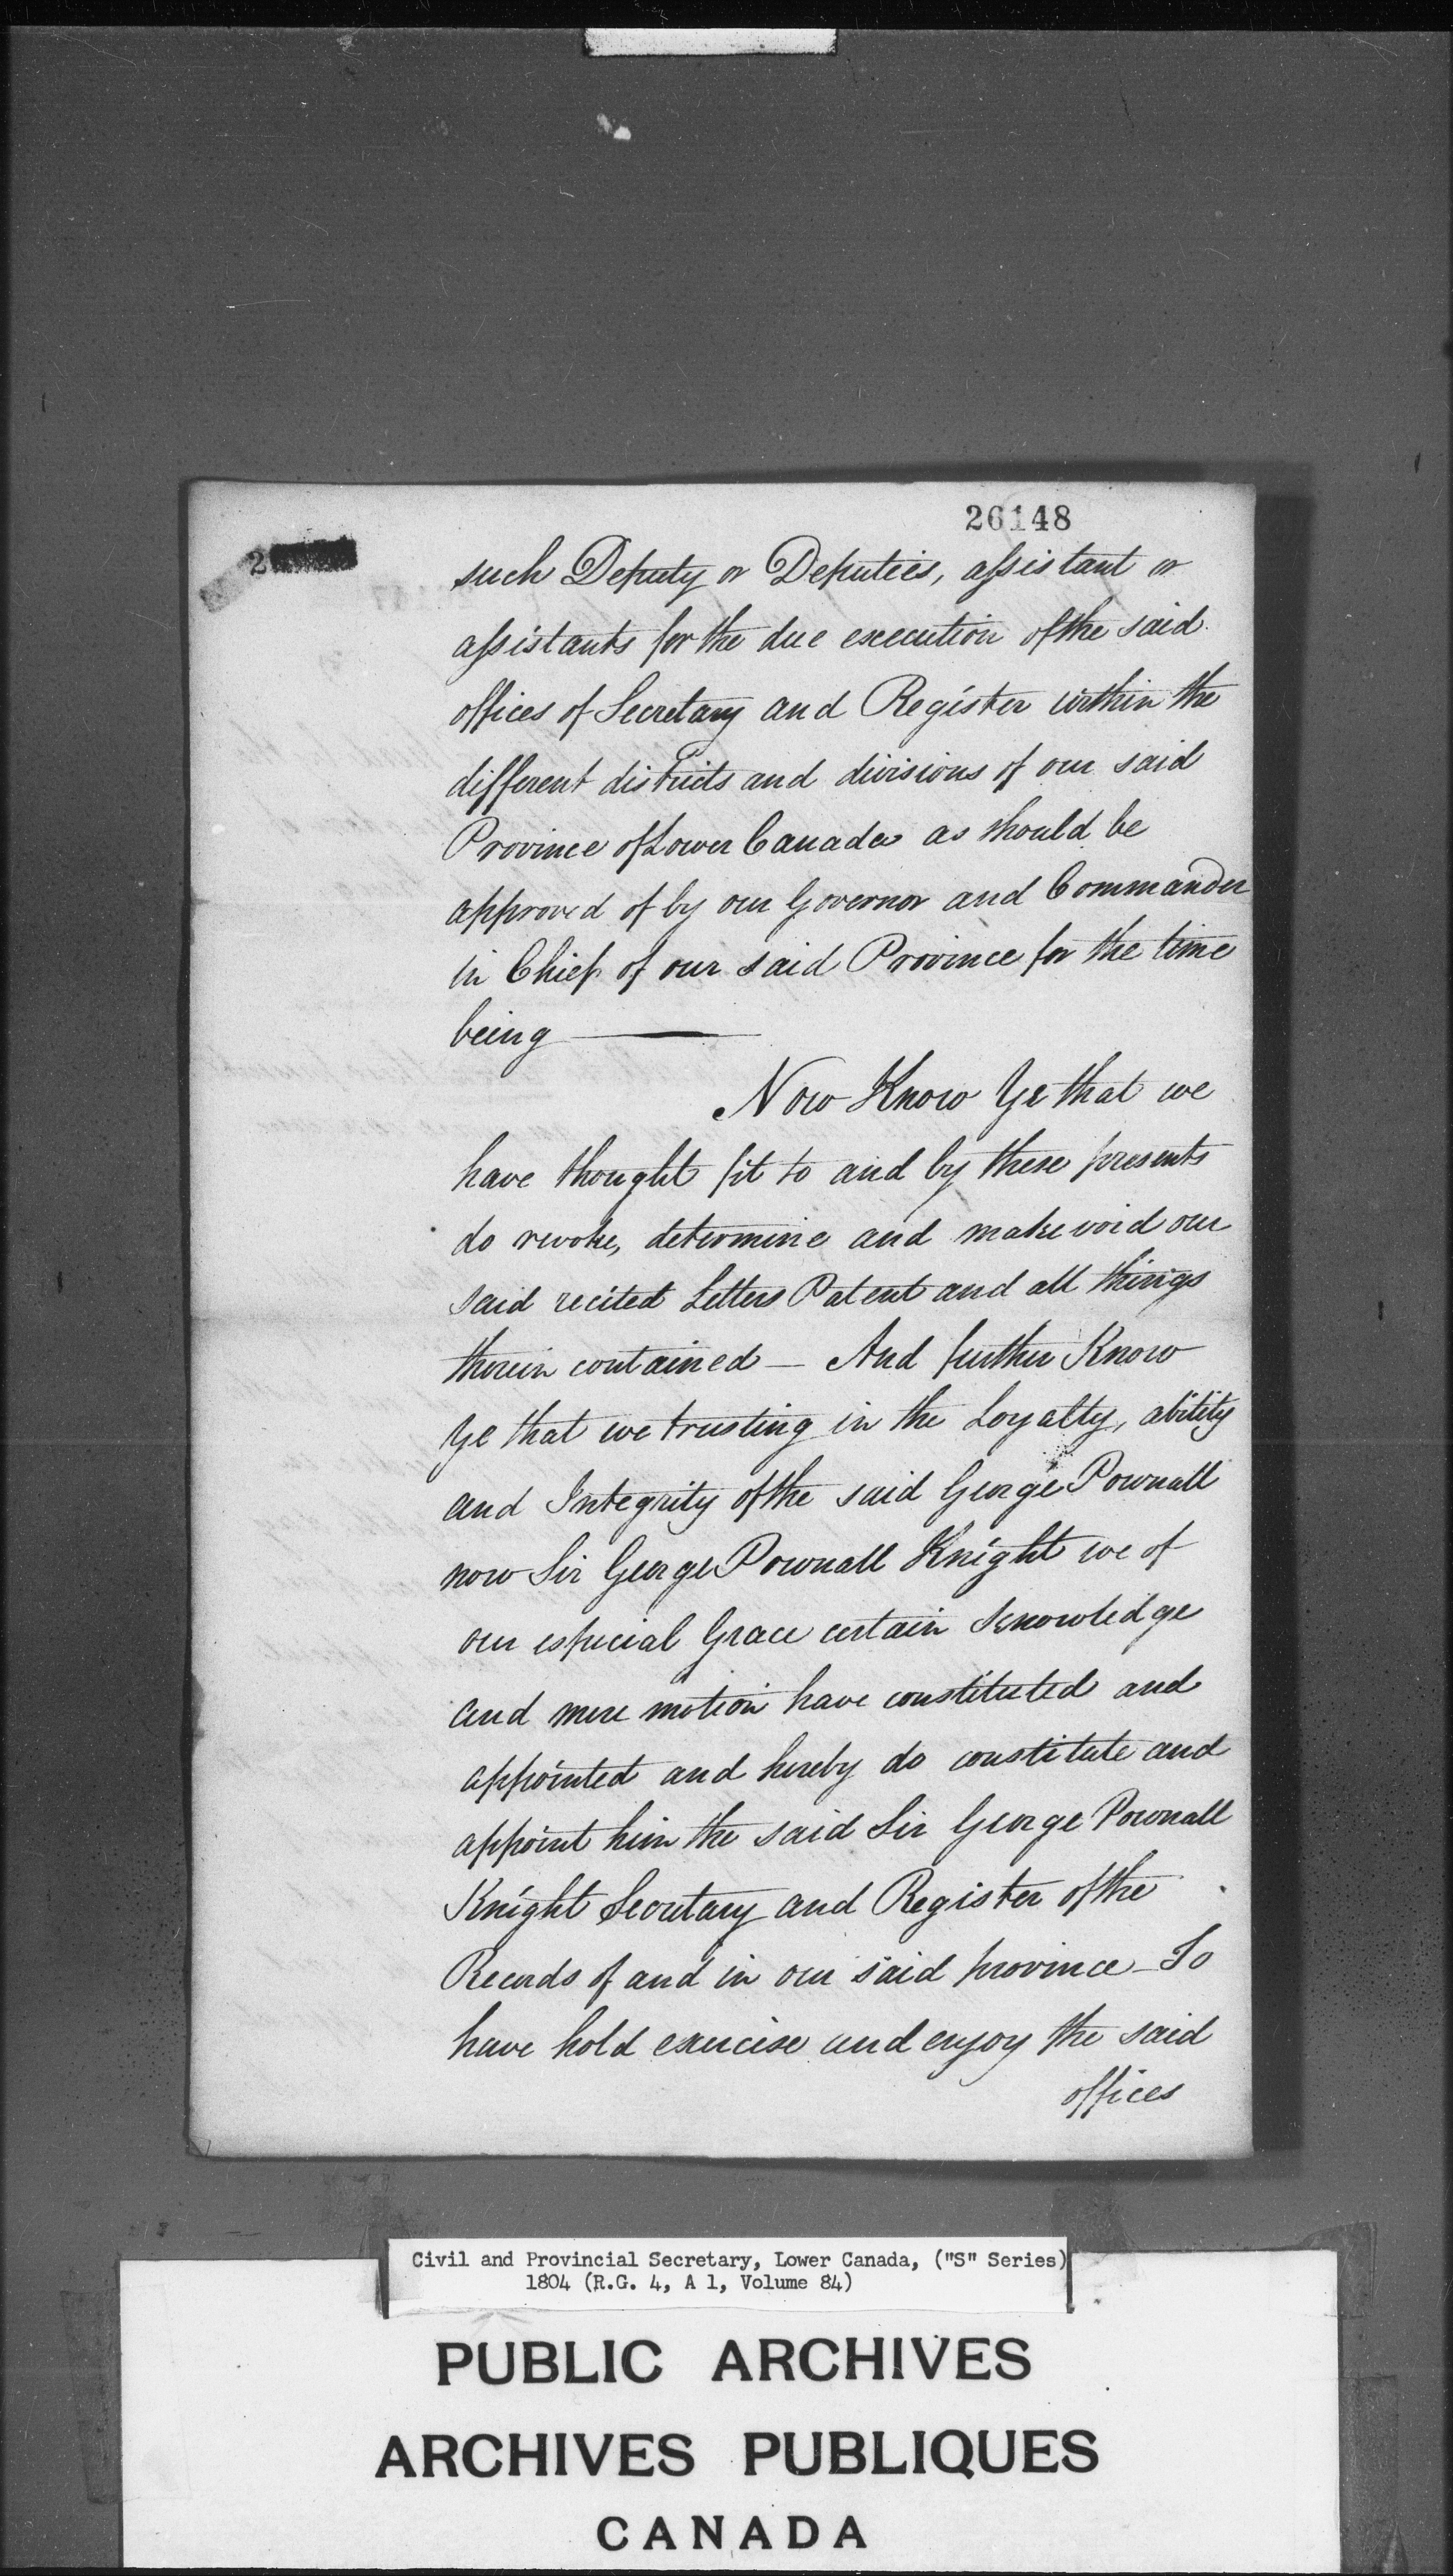 26148
2
such Deputy or Deputies, assistant or
assistants for the due execution of the said
offices of Secretary and Register within the
different districts and divisions of our said
Province of Lower Canada as should be
approved of by our Governor and Commander
in Chief of our said Province for the time
being —
Now Know Ye that we
have thought fit to and by these presents
do revoke, determine and make void our
said recited Letters Patent and all things
therein contained — And further Know
Ye that we trusting in the Loyalty, ability
and Integrity of the said George Pownall
now Sir George Pownall Knight we of
our especial Grace certain Knowledge
and mere motion have constituted and
appointed and hereby do constitute and
appoint him the said Sir George Pownall
Knight Secretary and Register of the
Records of and in our said province - To
have hold exercise and enjoy the said
offices
Civil and Provincial Secretary, Lower Canada, ("S" Series)
1804 (R.G. 4, A 1, Volume 84)
PUBLIC ARCHIVES
ARCHIVES PUBLIQUES
CANADA